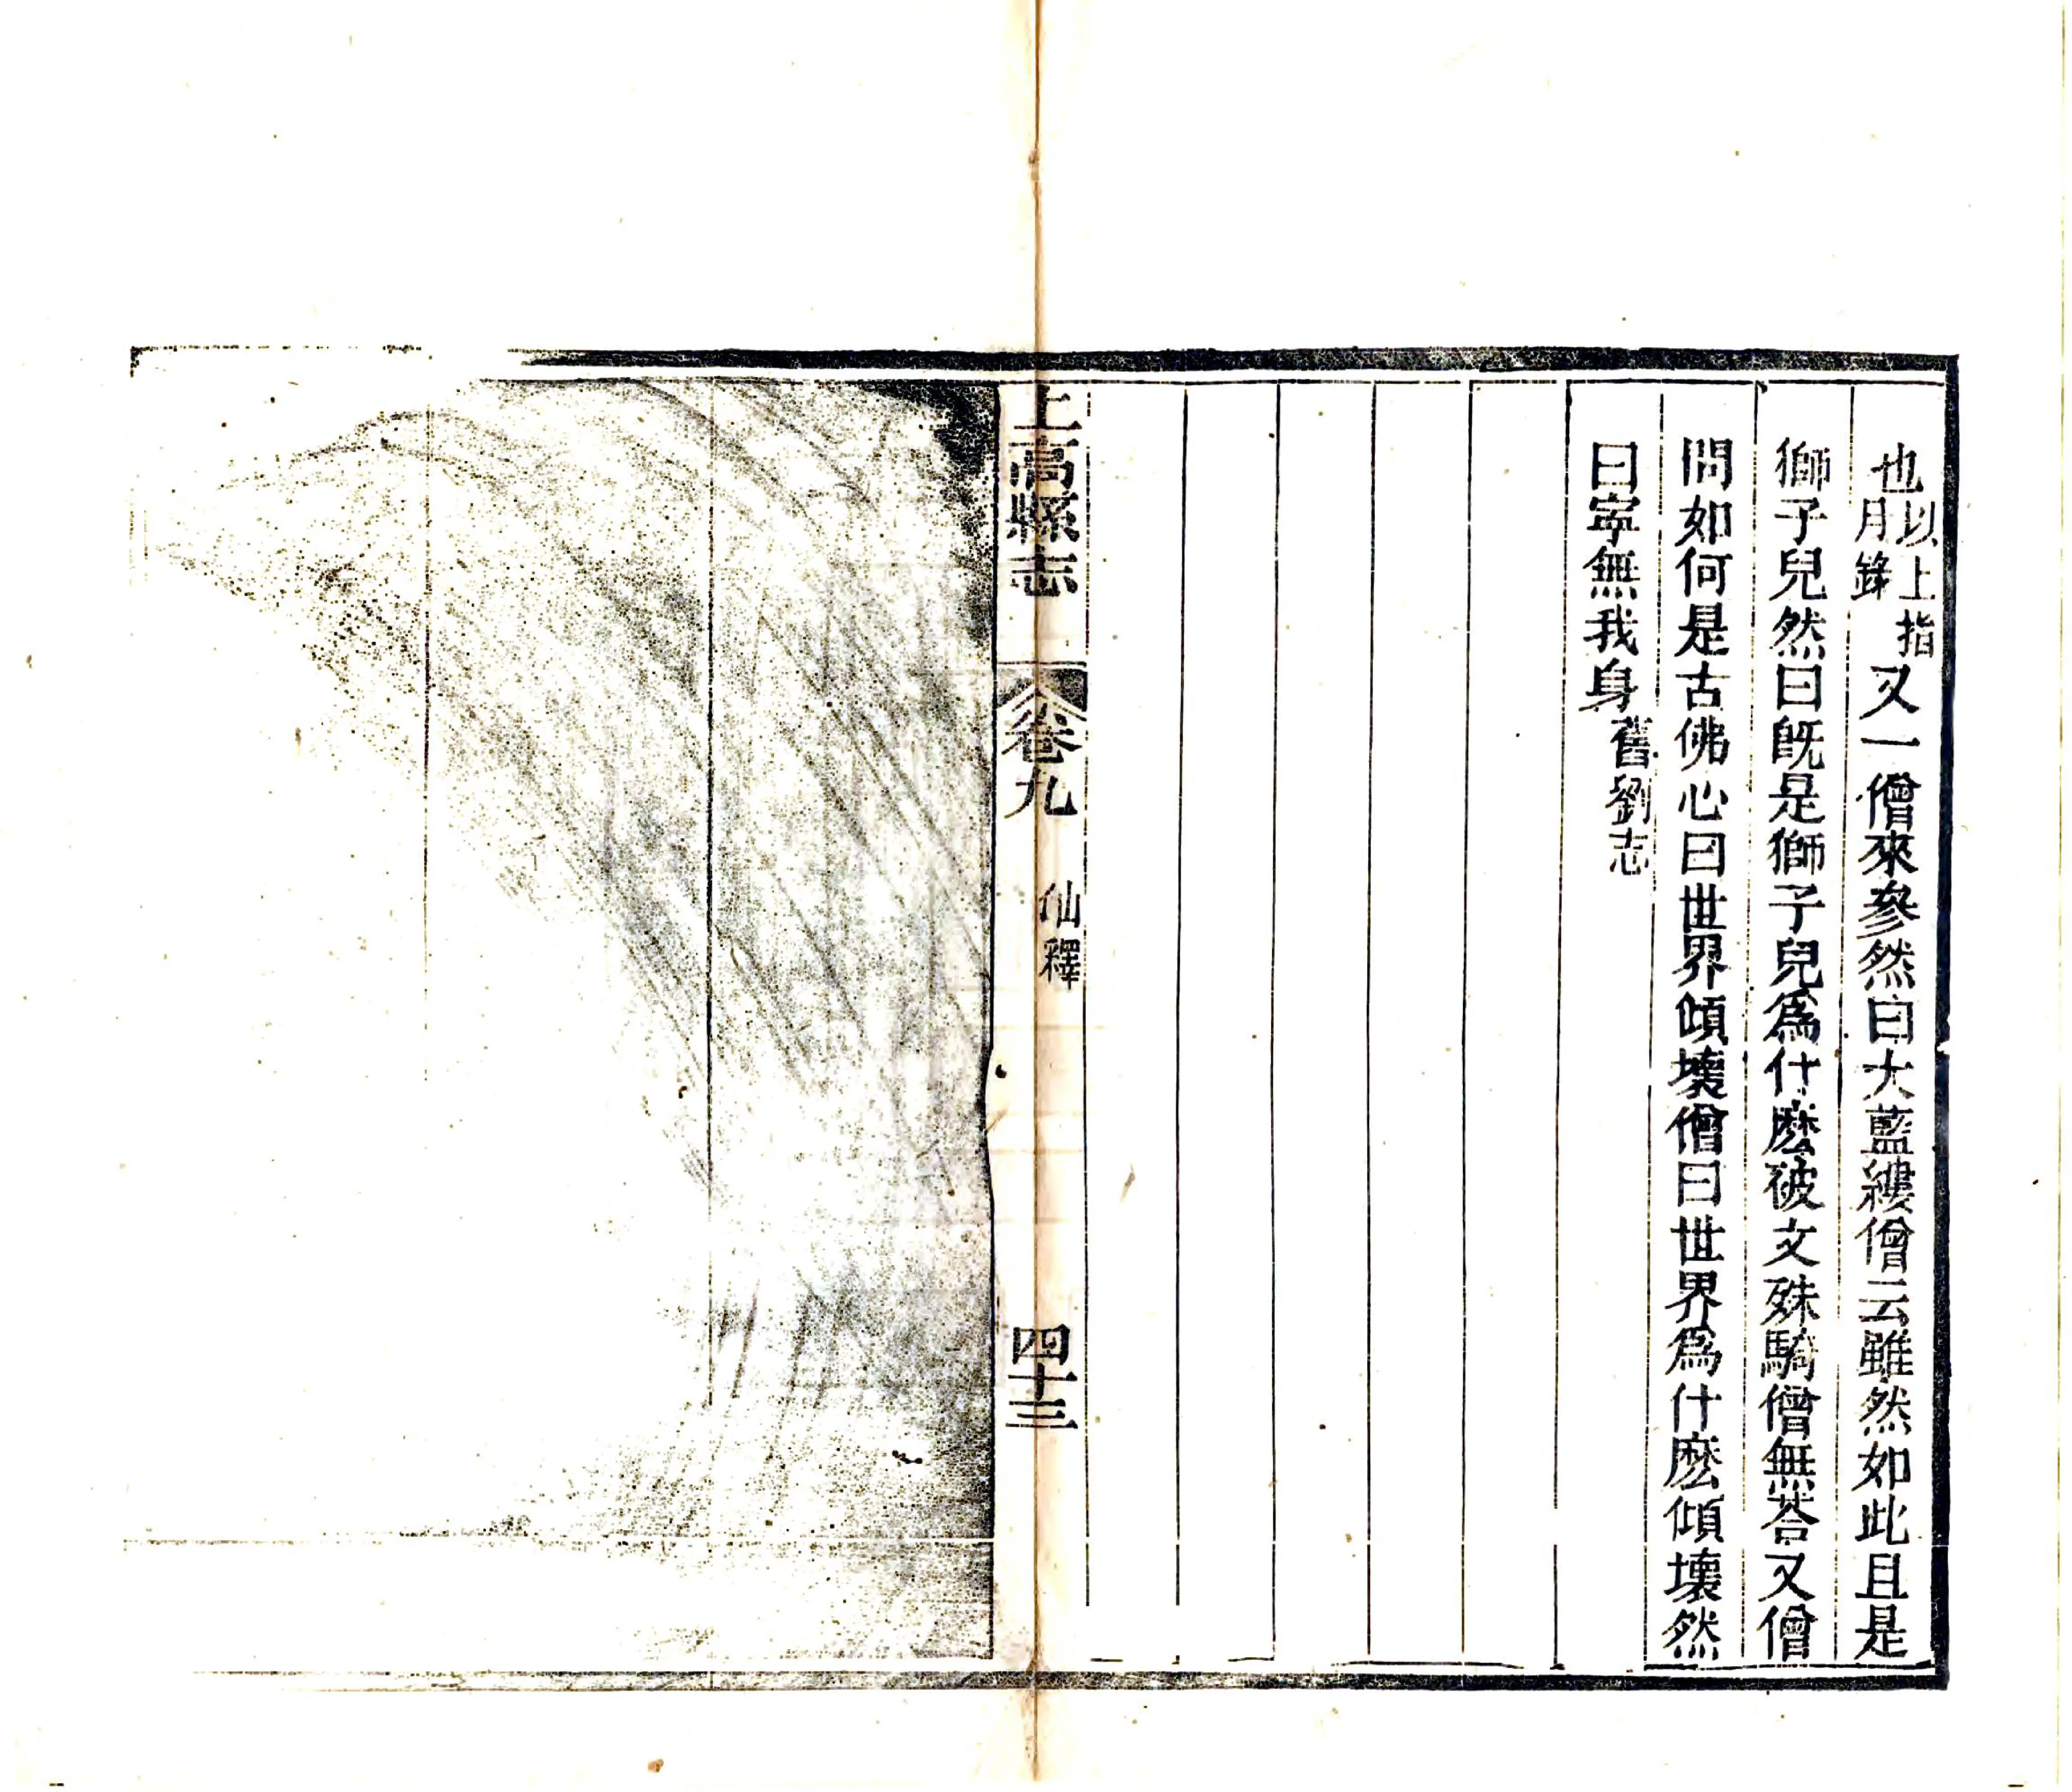 也以上指月錄又一僧來參然曰大藍縷僧云雖然如此且是
獅子兒然曰旣是獅子兒爲什麽破文殊騎僧無荅又僧
問如何是古佛心曰世界傾壞僧曰世界爲什麽傾壞然
曰寜無我身舊劉志
上高縣志 卷九 仙釋 四十三